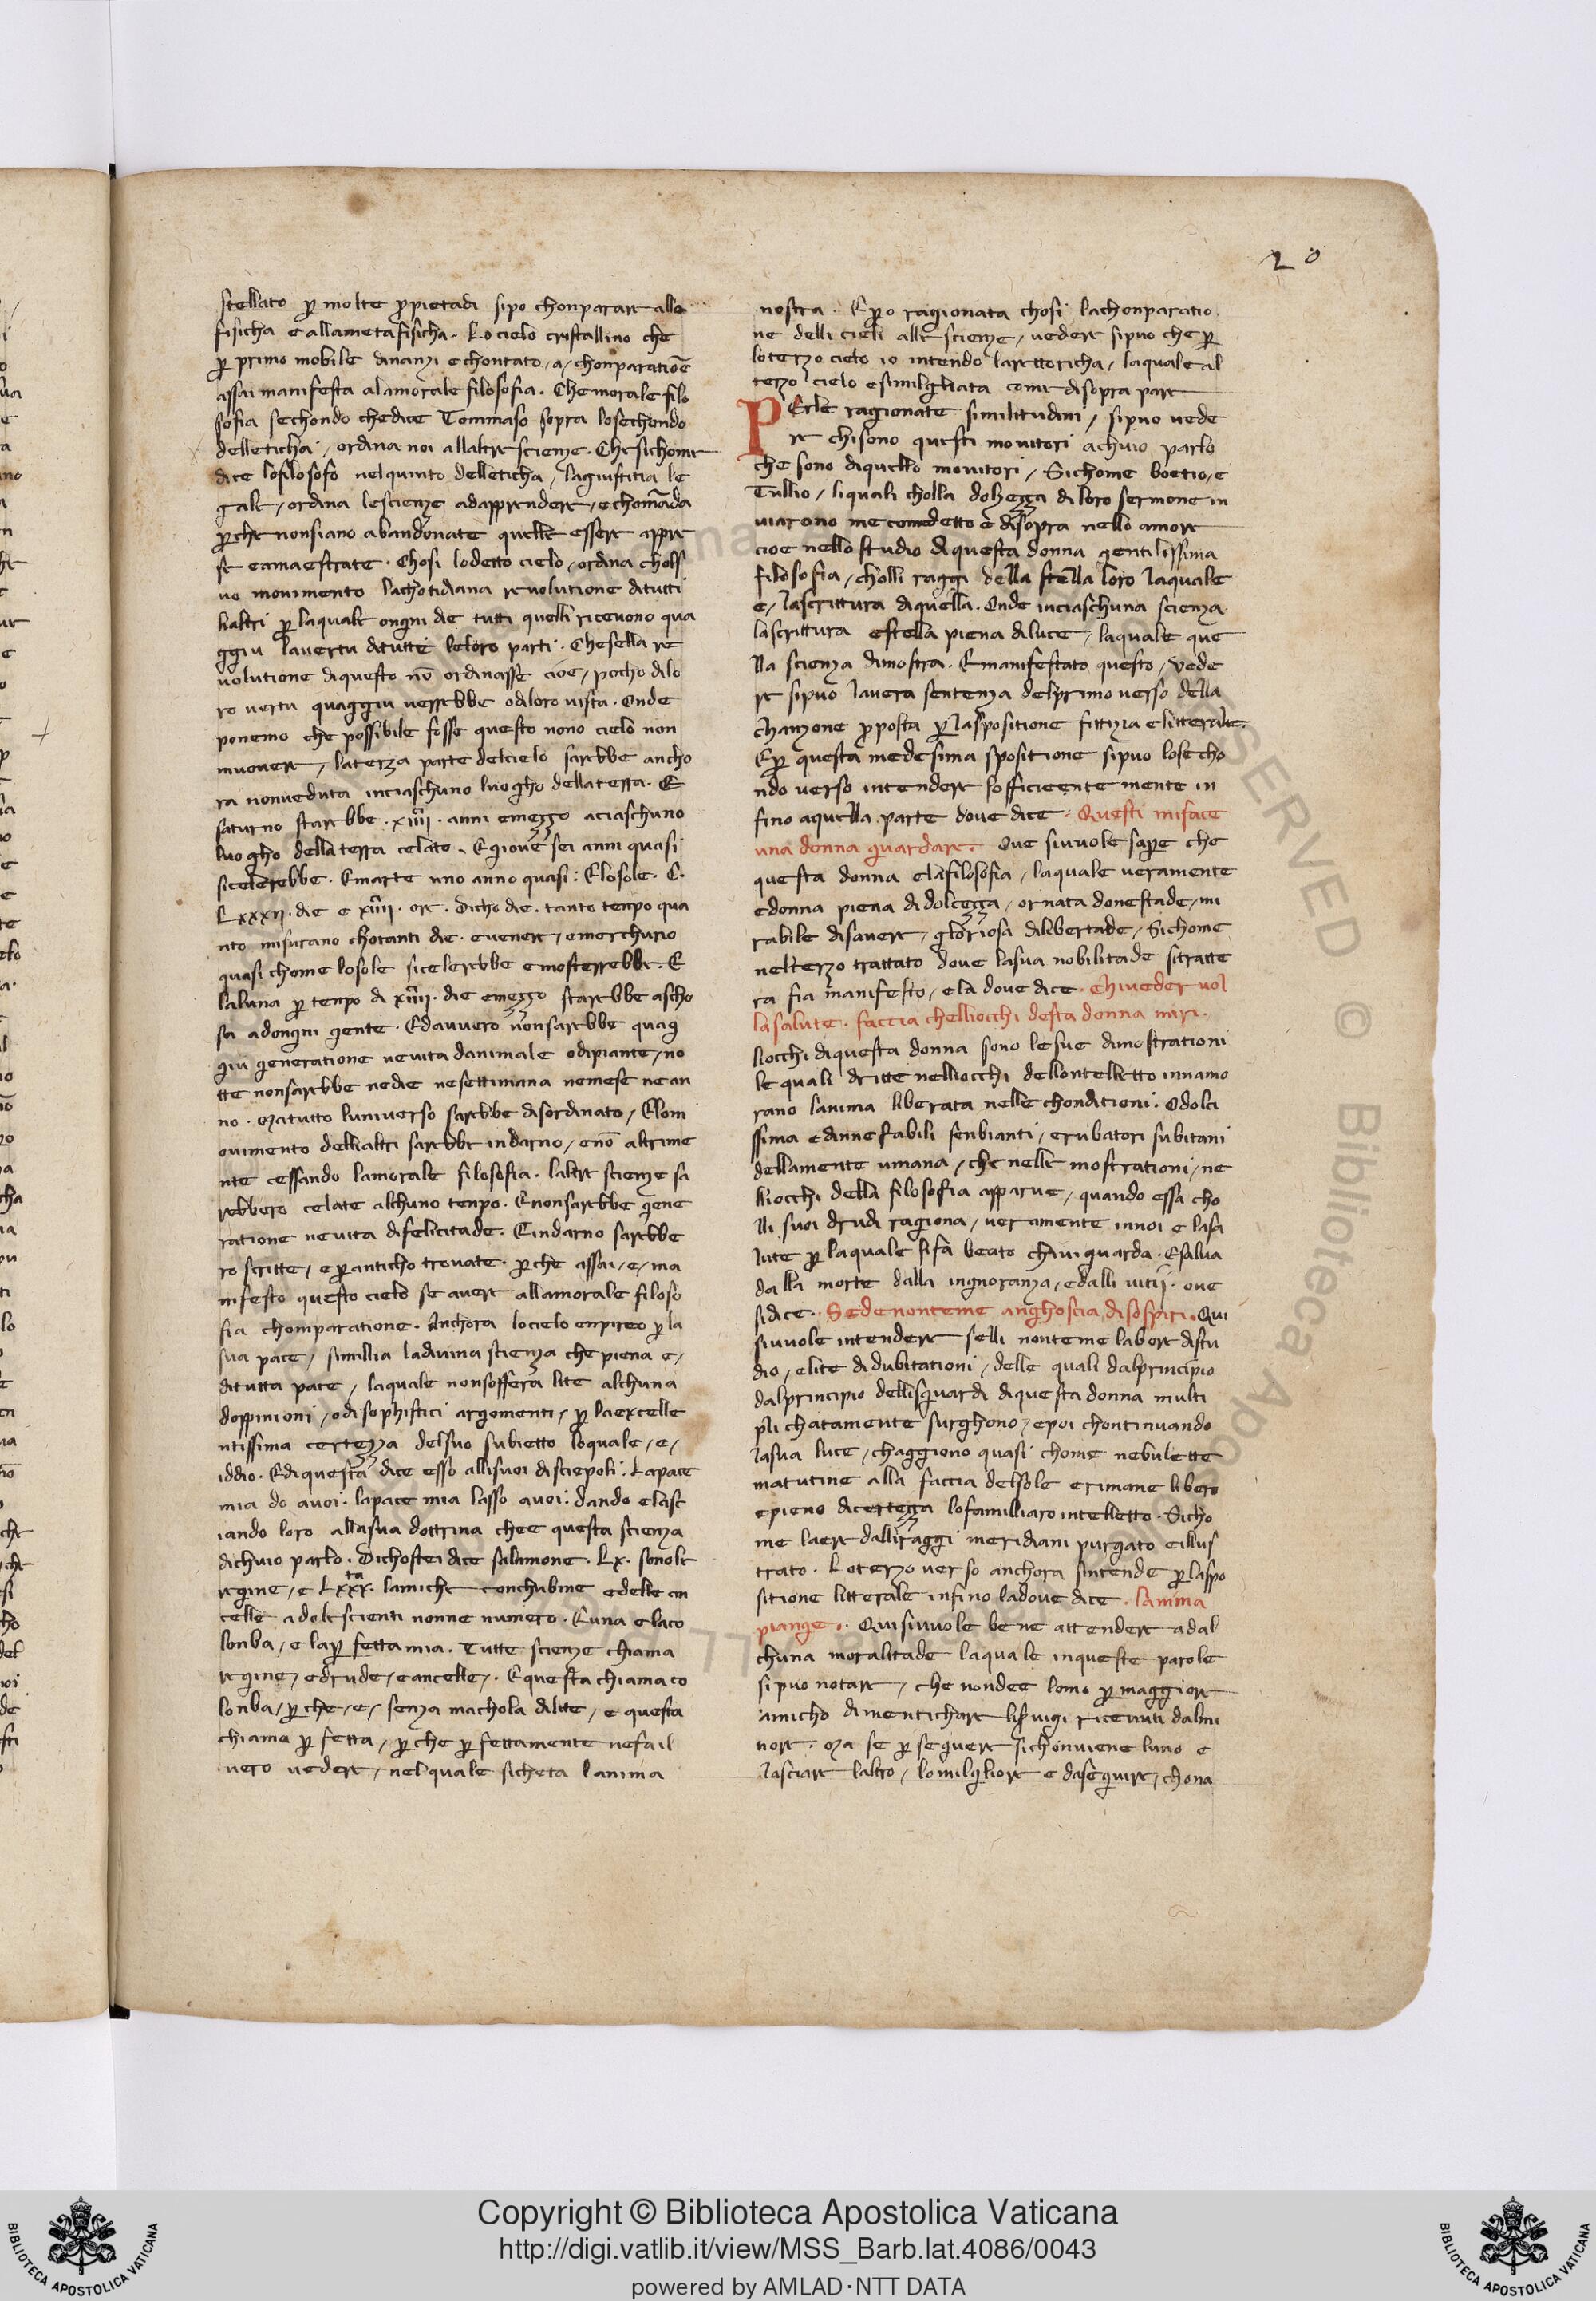 20
stellato ꝑ molte ꝓpietadi sipo chonparare alla
fisicha e allametafisicha. Lo cielo cristallino che
ꝑ primo mobile dinanzi e chontato, a, chonparatiōe
assai manifesta alamorale filosofia. Che morale filo
sofia sechondo chedice Tommaso sopra losechondo
delleticha, ordina noi allaltre scienze. Che sichome
dice lofilosofo nelquinto delleticha, lagiustitia le
gale, ordina lescienze adapprendere, e chomāda
ꝑche nonsiano abandonate quelle essere appre
se e amaestrate. Chosi lodetto cielo, ordina cholsu
uo mouimento lachotidiana reuolutione ditutti
lialtri ꝑ laquale ongni die tutti quelli riceuono qua
ggiu lauertu ditutte leloro parti. Chesella re
uolutione diquesto nō ordinasse cioe, pocho dilo
ro uertu quaggiu uerrebbe odiloro uista. Onde
ponemo che possibile fosse questo nono cielo non
muouere, laterza parte delcielo sarebbe ancho
ra nonueduta inciaschuno luogho dellaterra. E
saturno starebbe. xiiii. anni emezzo aciaschuno
luogho dellaterra celato. Egioue sei anni quasi
sicelerebbe. Emarte uno anno quasi: Elosole. C.
Lxxxij. die e xiiii. ore. Dicho die. tanto tenpo qua
nto misurano chotanti die. e uenere, emerchurio
quasi chome losole sicelerebbe emosterrebbe. E
laluna ꝑ tenpo di xiiii. die emezzo starebbe ascho
sa adongni gente. Edauuero nonsarebbe quag
giu generatione neuita danimale odipiante, no
tte nonsarebbe nedie nesettimana nemese nean
no. Matutto luniuerso sarebbe disordinato, Elom
ouimento dellialtri sarebbe indarno, enō altrime
nte cessando lamorale filosofia. laltre scienze sa
rebbero celate alchuno tenpo. Enonsarebbe gene
ratione neuita difelicitade. Eindarno sarebbe
ro scritte, e ꝑ anticho trouate. ꝑche assai, e, ma
nifesto questo cielo se auere allamorale filoso
fia chomparatione. Anchora locielo enpireo ꝑ la
sua pace, simillia ladiuina scienza che piena e,
ditutta pace, laquale nonsoffera lite alchuna
doppinioni, odi sophistici argomenti, ꝑ laexcelle
ntissima certezza delsuo subietto loquale, e,
iddio. Ediquesta dice esso allisuoi disciepoli. Lapace
mia do auoi. lapace mia lasso auoi: dando elasc
iando loro allasua dottrina chee questa scienza
dichuio parlo. Dichostei dice salamone. Lx. sonole
regine, e Lxxx.ta lamiche conchubine e delle an
celle adolescienti nonne numero. Euna elaco
lonba, e laꝑfetta mia. Tutte scienze chiama
regine, edrude, eancelle,. Equesta chiamaco
lonba, ꝑche, e, senza machola dilite, e questa
chiama ꝑfetta, ꝑche ꝑfettamente nefail
uero uedere, nelquale sicheta lanima
nostra. Eꝑo ragionata chosi lachonparatio
ne delli cieli alle scienze, uedere sipuo che ꝑ
loterzo cielo io intendo larettoricha, laquale al
terzo cielo esimilgliata come disopra pare
PErle ragionate similitudini, sipuo uede
re chisono questi mouitori achuio parlo
che sono diquello mouitori, Sichome boetio, e
Tullio, liquali cholla dolzezza di loro sermone in
uiarono me comedetto e disopra nello amore
cioe nello studio di questa donna gentilissima
filosofia, cholli raggi della stella loro laquale
e, lascrittura diquella. Onde inciaschuna scienza.
lascrittura estella piena diluce, laquale que
lla scienza dimostra. Emanifestato questo, uede
re sipuo lauera sentenza delprimo uerso della
chanzone ꝓposta ꝑ laspositione fittizia elitterale.
Eꝑ questa medesima spositione sipuo losecho
ndo uerso intendere sofficieente mente in
fino aquella parte doue dice. Questi miface
una donna guardare. Oue siuuole saꝑe che
questa donna elafilosofia, laquale ueramente
edonna piena di dolcezza, ornata donestade, mi
rabile disauere, gloriosa dilibertade, Sichome
nelterzo trattato doue lasua nobilitade sitratte
ra fia manifesto, e la doue dice. Chiueder uol
lasalute. faccia chelliocchi desta donna miri.
liocchi diquesta donna sono lesue dimostrationi
le quali dritte nelliocchi dellontelletto innamo
rano lanima liberata nelle chonditioni. Odolci
ssima edinnefabili senbianti, erubatori subitani
dellamente umana, che nelle mostrationi, ne
lliocchi della filosofia apparue, quando essa cho
lli suoi drudi ragiona, ueramente innoi e lasa
lute ꝑ laquale sifa beato chiui guarda. Esalua
dalla morte dalla ingnoranza, edalli uitij. oue
sidice. Sedenonteme anghoscia disospiri. Qui
siuuole intendere selli nonteme labore distu
dio, elite di dubitationi, delle quali dalprincipio
dalprincipio dellisguardi diquesta donna multi
plichatamente surghono, epoi chontinuando
lasua luce, chaggiono quasi chome nebulette
matutine alla faccia delsole erimane libero
epieno dicertezza lofamilliaro intelletto. Sicho
me laere dalliraggi meridiani purgato eillus
trato. Loterzo uerso anchora sintende ꝑ laspo
sitione litterale infino ladoue dice. lanima
piange. Quisiuuole bene attendere adal
chuna moralitade laquale inqueste parole
sipuo notare, che nondee lomo ꝑ maggiore
amicho dimentichare liseruigi riceuuti dalmi
nore. Ma se ꝑ seguere sichonuiene luno e
lasciare laltro, lomilgliore e daseguire, chona
RESERVED © Biblioteca Apostolica
Copyright © Biblioteca Apostolica Vaticana
http://digi.vatlib.it/view/MSS_Barb.lat.4086/0043
powered by AMLAD·NTT DATA
BIBLIOTECA APOSTOLICA VATICANA
BIBLIOTECA APOSTOLICA VATICANA